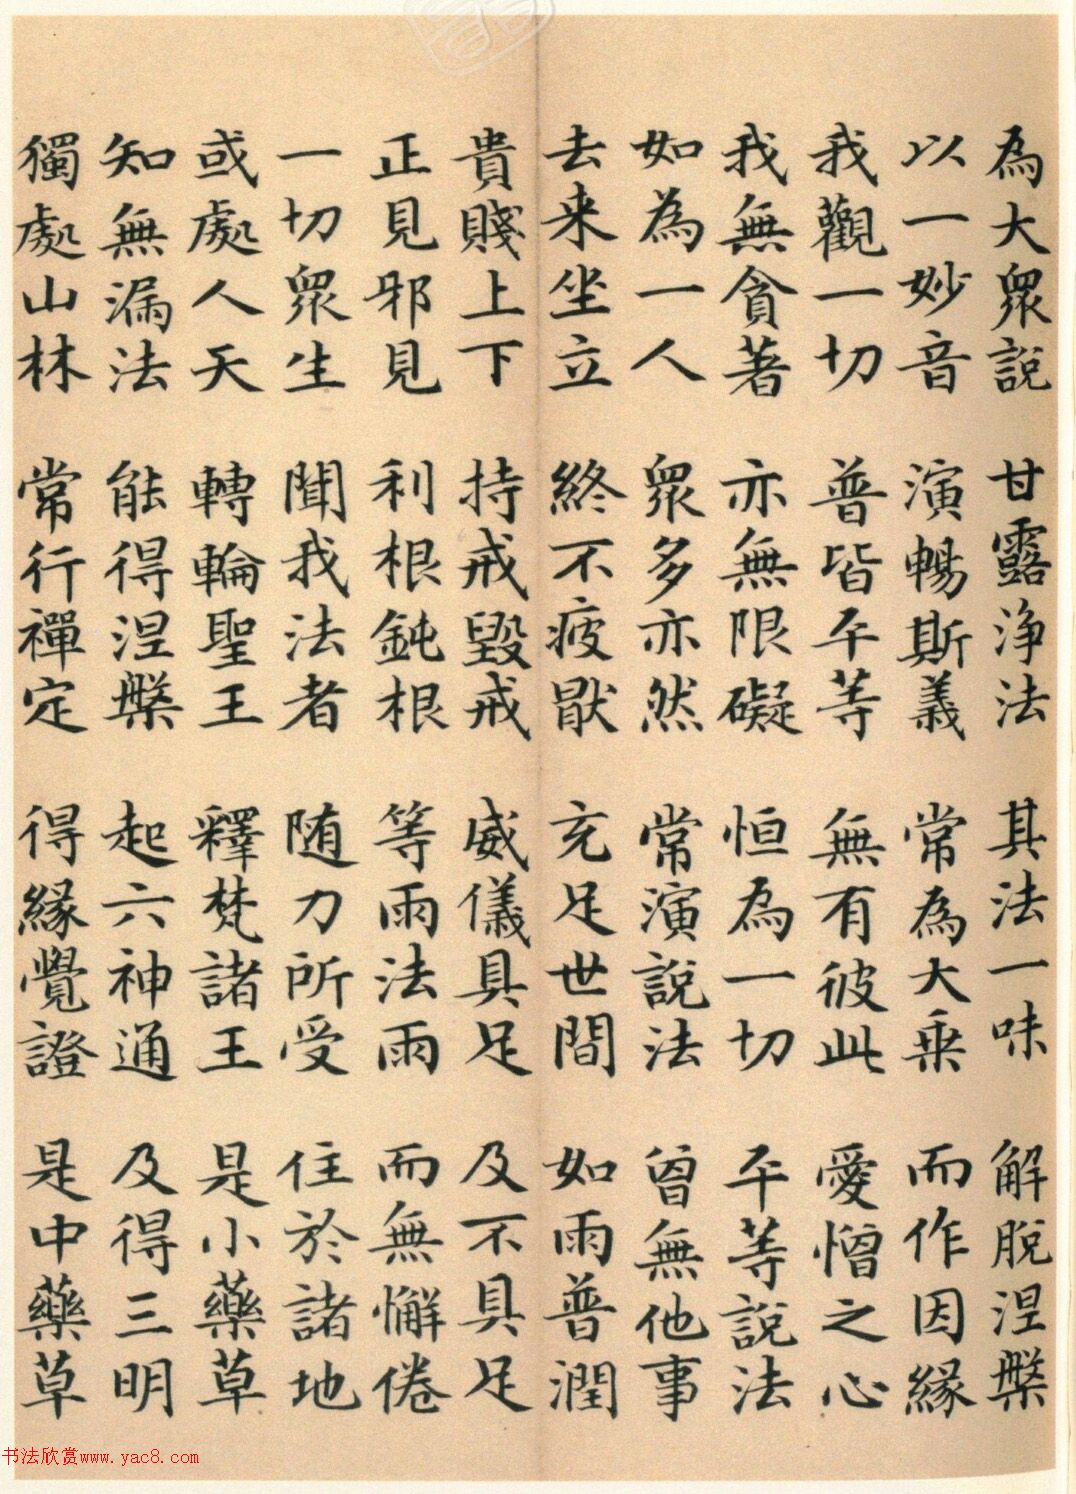 為大衆說 甘露淨法 其法一味 解脫涅槃
以一妙音 演暢斯義 常為大乘 而作因緣
我觀一切 普皆平等 無有彼此 愛憎之心
我無貪著 亦無限礙 恒為一切 平等說法
如為一人 衆多亦然 常演說法 曾無他事
去来坐立 終不疲猒 充足世間 如雨普潤
貴賤上下 持戒毀戒 威儀具足 及不具足
正見邪見 利根鈍根 等雨法雨 而無懈倦
一切衆生 聞我法者 随力所受 住於諸地
或處人天 轉輪聖王 釋梵諸王 是小藥草
知無漏法 能得涅槃 起六神通 及得三明
獨處山林 常行禪定 得緣覺證 是中藥草
书法欣赏www.yac8.com